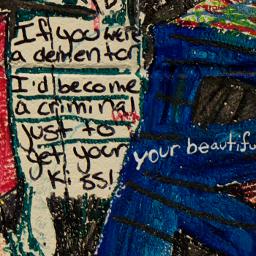 If you were
a dementor
I'd become
a criminal
just to
get your
kiss!
your beautifu